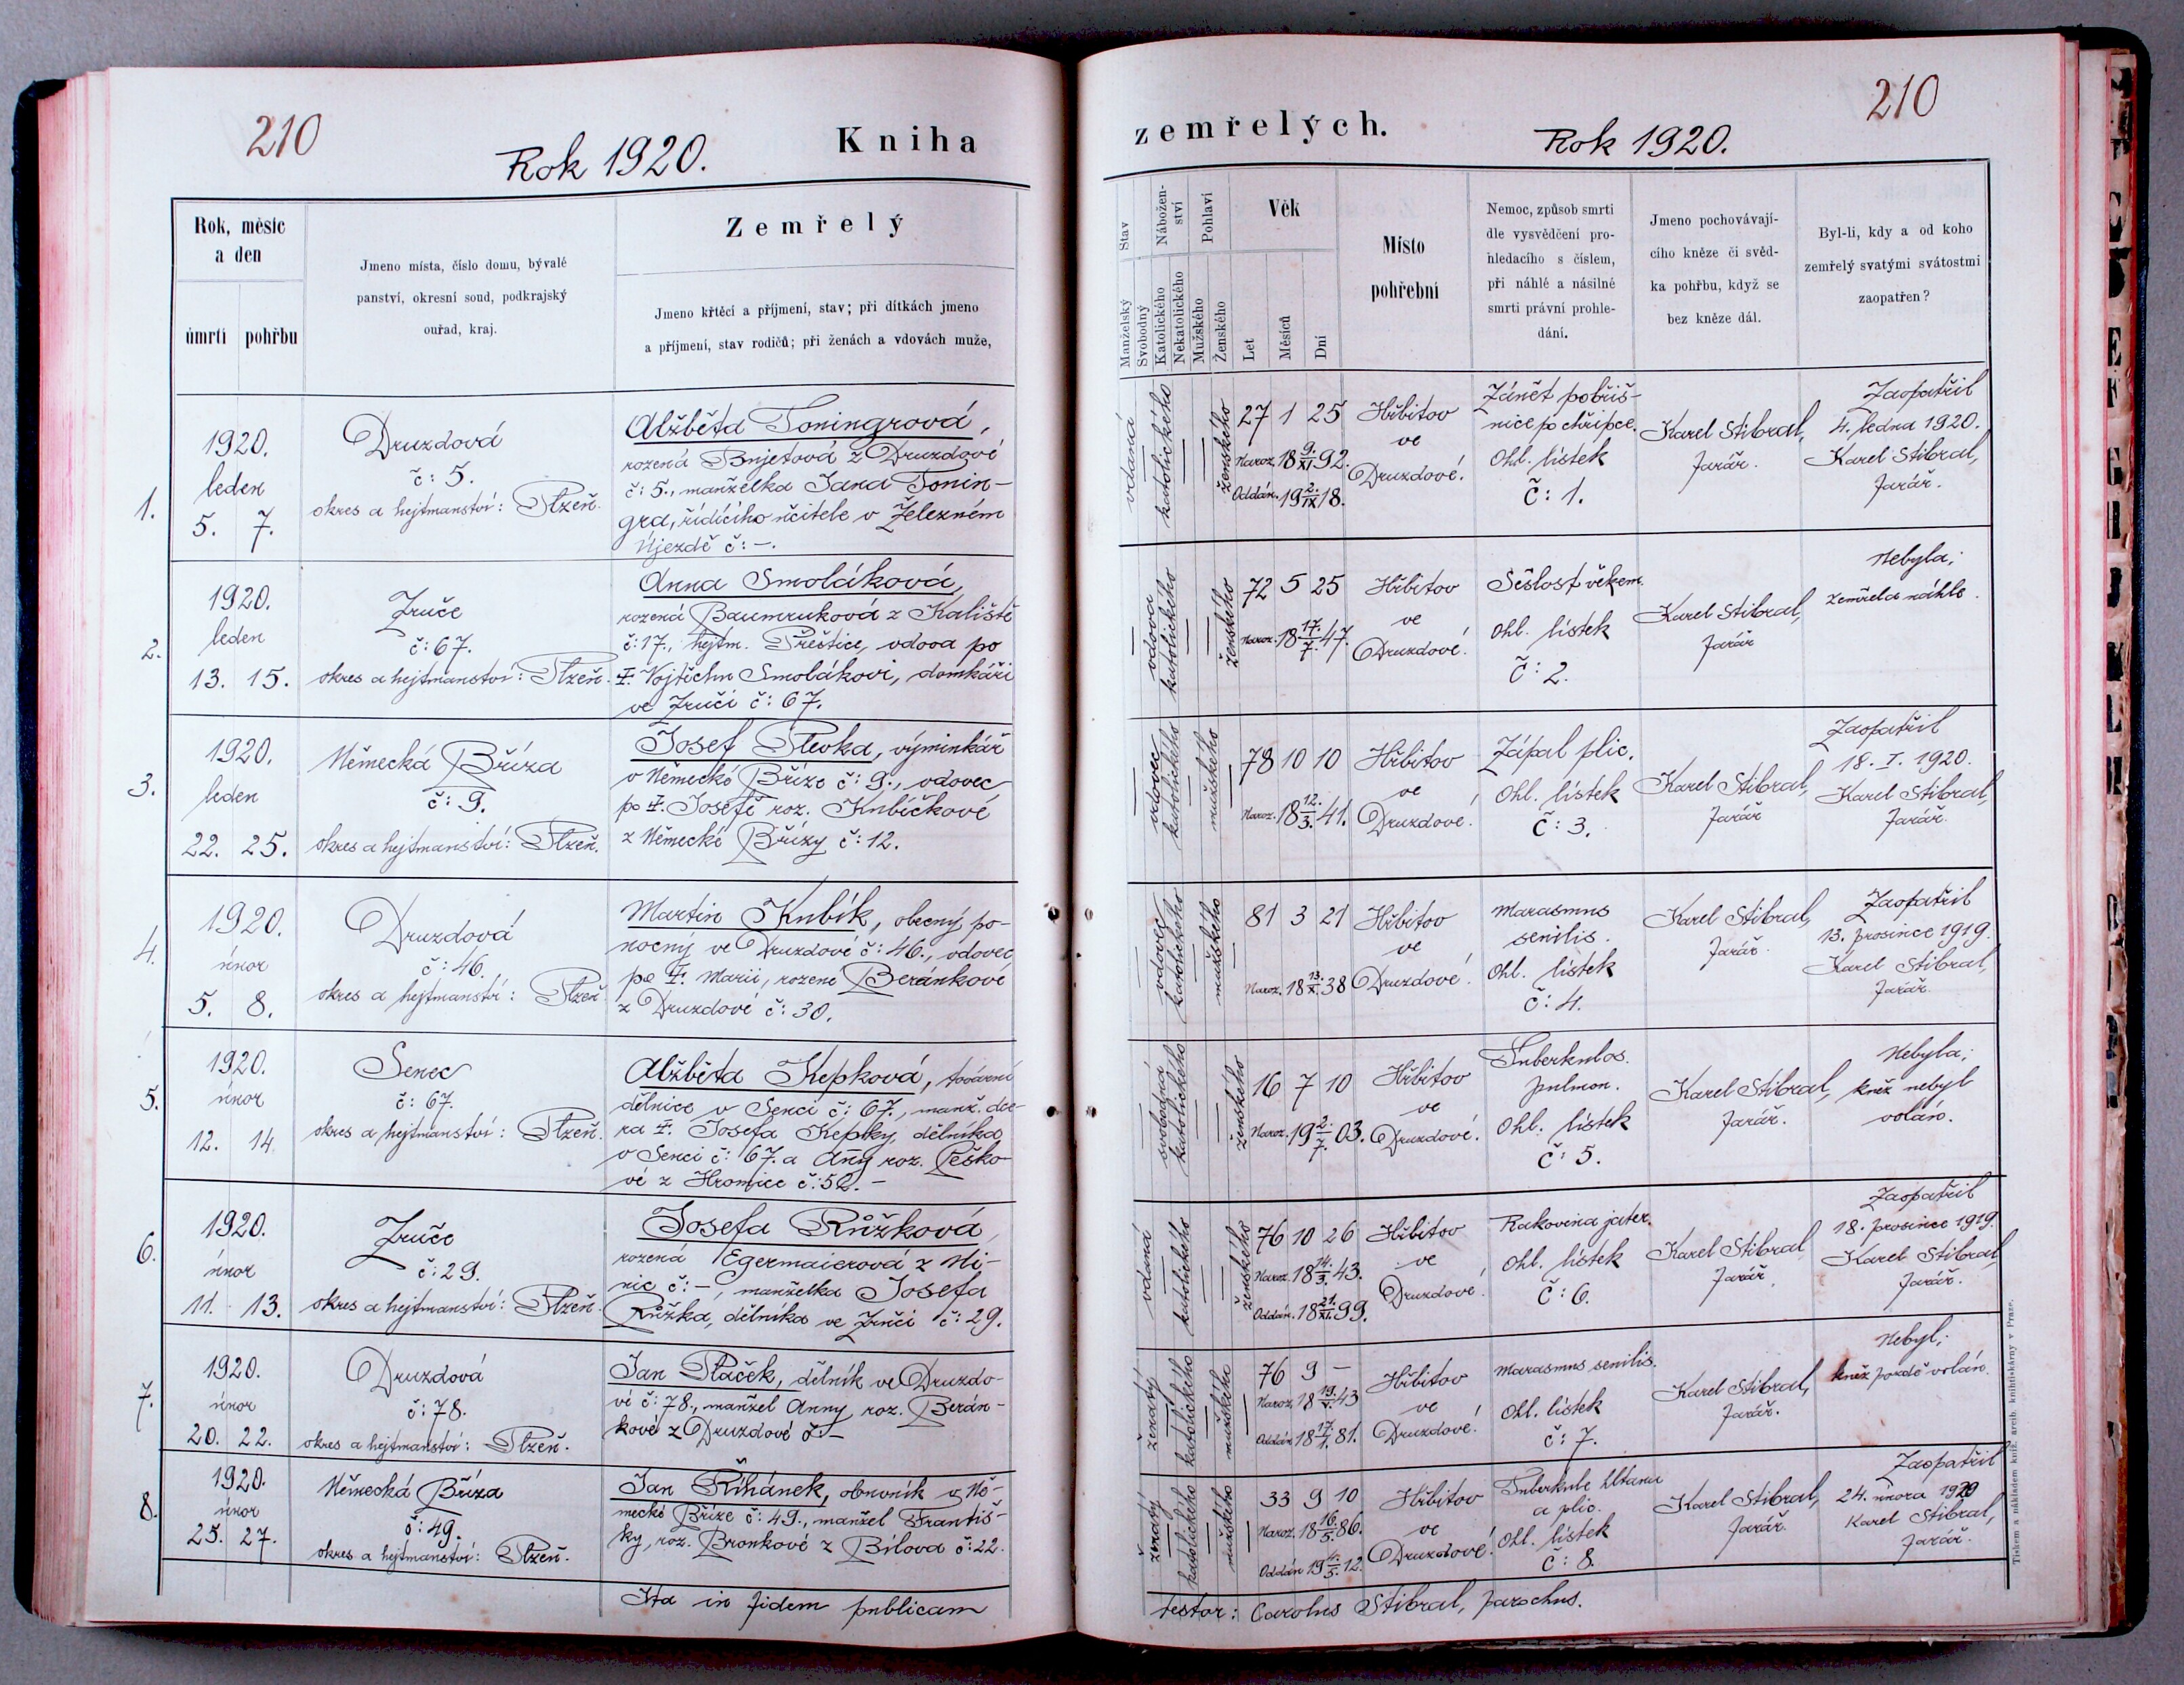 210
Rok 1920.
Kniha
Rok, měsíc
a den
úmrtí pohřbu
Jmeno místa, číslo domu, bývalé
panství, okresní soud, podkrajský
ouřad, kraj.
Zemřelý
Jmeno křtěcí a příjmení, stav; při dítkách jmeno
a příjmení, stav rodičů; při ženách a vdovách muže,
1.
1920.
leden
5. 7.
Druzdová
č: 5.
okres a hejtmanství: Plzeň.
Alžběta Toningrová,
rozená z Druzdové
č: 5., manželka Jana Tonin-
gra, řídícího učitele v Železném
Újezdě č: –.
2.
1920.
leden
13. 15.
Zruče
č: 67.
okres a hejtmanství: Plzeň.
Anna Smoláková,
rozená Baumruková z Kaliště
č: 17., hejtm. Přeštice, vdova po
Vojtěchu Smolákovi, domkáři
ve Zruči č: 67.
3.
1920.
leden
22. 25.
Německá Bříza
č: 9.
okres a hejtmanství: Plzeň.
Josef Plevka, výminkář
v Německé Bříze č: 9., vdovec
po Josefě roz. Kubíčkové
z Německé Břízy č: 12.
4.
1920.
únor
5. 8.
Druzdová
č: 46.
okres a hejtmanství: Plzeň
Martin Kubík, obecný po-
nocný ve Druzdové č: 46., vdovec
po Marii, rozené Beránkové
z Druzdové č: 30.
5.
1920.
únor
12. 14
Senec
č: 67.
okres a hejtmanství: Plzeň.
Alžběta Kepková, tovární
dělnice v Senci č: 67., manž. dce-
ra Josefa Kepky, dělníka
v Senci č: 67. a Any roz. Peško-
vé z Hromice č: 52. –
6.
1920.
únor
11. 13.
Zruče
č: 29.
okres a hejtmanství: Plzeň.
Josefa Růžková,
rozená Egermaierová z Ni-
nic č: –, manželka Josefa
Růžka, dělníka ve Zruči č: 29.
7.
1920.
únor
20. 22.
Druzdová
č: 78.
okres a hejtmanství: Plzeň.
Jan Ptáček, dělník ve Druzdo-
vé č: 78., manžel Anny roz. Berán-
kové z Druzdové č: –
8.
1920.
únor
25. 27.
Německá Bříza
č: 49.
okres a hejtmanství: Plzeň.
Jan Říhánek, obuvník v Ně-
mecké Bříze č: 49., manžel Františ-
ky, roz. Bronkové z Bílova č: 22.
Ita in fidem publicam
210
zemřelých.
Rok 1920.
Stav
Manželský
Svobodný
Nábožen-
ství
Katolického
Nekatolického
Pohlaví
Mužského
Ženského
Věk
Let
Měsíců
Dní
Místo
pohřební
Nemoc, způsob smrti
dle vysvědčení pro-
hledacího s číslem,
při náhlé a násilné
smrti právní prohle-
dání.
Jmeno pochovávají-
cího kněze či svěd-
ka pohřbu, když se
bez kněze dál.
Byl-li, kdy a od koho
zemřelý svatými svátostmi
zaopatřen?
vdaná
katolického
ženského
27 1 25
Naroz. 18 9./XI. 92.
Oddán. 19 2./IX. 18.
Hřbitov
ve
Druzdové.
Zánět pobřiš-
nice po chřipce.
Ohl. lístek
Č: 1.
Karel Stibral,
farář.
Zaopatřil
4. ledna 1920.
Karel Stibral,
farář.
vdova
katolického
ženského
72 5 25
Naroz. 18 17./7. 47.
Hřbitov
ve
Druzdové!
Sešlost věkem.
Ohl. lístek
Č: 2.
Karel Stibral,
farář
Nebyla;
zemřela náhle.
vdovec
katolického
mužského
78 10 10
Naroz. 18 12./3. 41.
Hřbitov
ve
Druzdové!
Zápal plic.
Ohl. lístek
Č: 3.
Karel Stibral,
farář
Zaopatřil
18. I. 1920.
Karel Stibral,
farář.
vdovec
katolického
mužského
81 3 21
Naroz. 18 13./X. 38
Hřbitov
ve
Druzdové!
Marasmus
senilis.
Ohl. lístek
č: 4.
Karel Stibral,
farář.
Zaopatřil
13. prosince 1919.
Karel Stibral,
farář.
svobodná
katolického
ženského
16 7 10
Naroz. 19 2./7. 03.
Hřbitov
ve
Druzdové!
Tuberkulos.
pulmon.
Ohl. lístek
Č: 5.
Karel Stibral,
farář.
Nebyla;
kněz nebyl
volán.
vdaná
katolického
ženského
76 10 26
Naroz. 18 14./3. 43.
Oddán. 18 21./XI. 99.
Hřbitov
ve
Druzdové!
Rakovina jater.
Ohl. lístek
Č: 6.
Karel Stibral,
farář.
Zaopatřil
18. prosince 1919.
Karel Stibral,
farář.
ženatý
katolického
mužského
76 9 –
Naroz. 18 19./V. 43
Oddán 18 17./1. 81.
Hřbitov
ve
Druzdové!
Marasmus senilis.
Ohl. lístek
č: 7.
Karel Stibral,
farář.
Nebyl;
kněz pozdě volán.
ženatý
katolického
mužského
33 9 10
Naroz. 18 16./5. 86.
Oddán 19 4./5. 12.
Hřbitov
ve
Druzdové!
Tuberkule hltanu
a plic.
Ohl. lístek
Č: 8.
Karel Stibral,
farář.
Zaopatřil
24. února 1920
Karel Stibral,
farář.
testor: Carolus Stibral, parochus.
Tiskem a nákladem kníž. arcib. knihtiskárny v Praze.